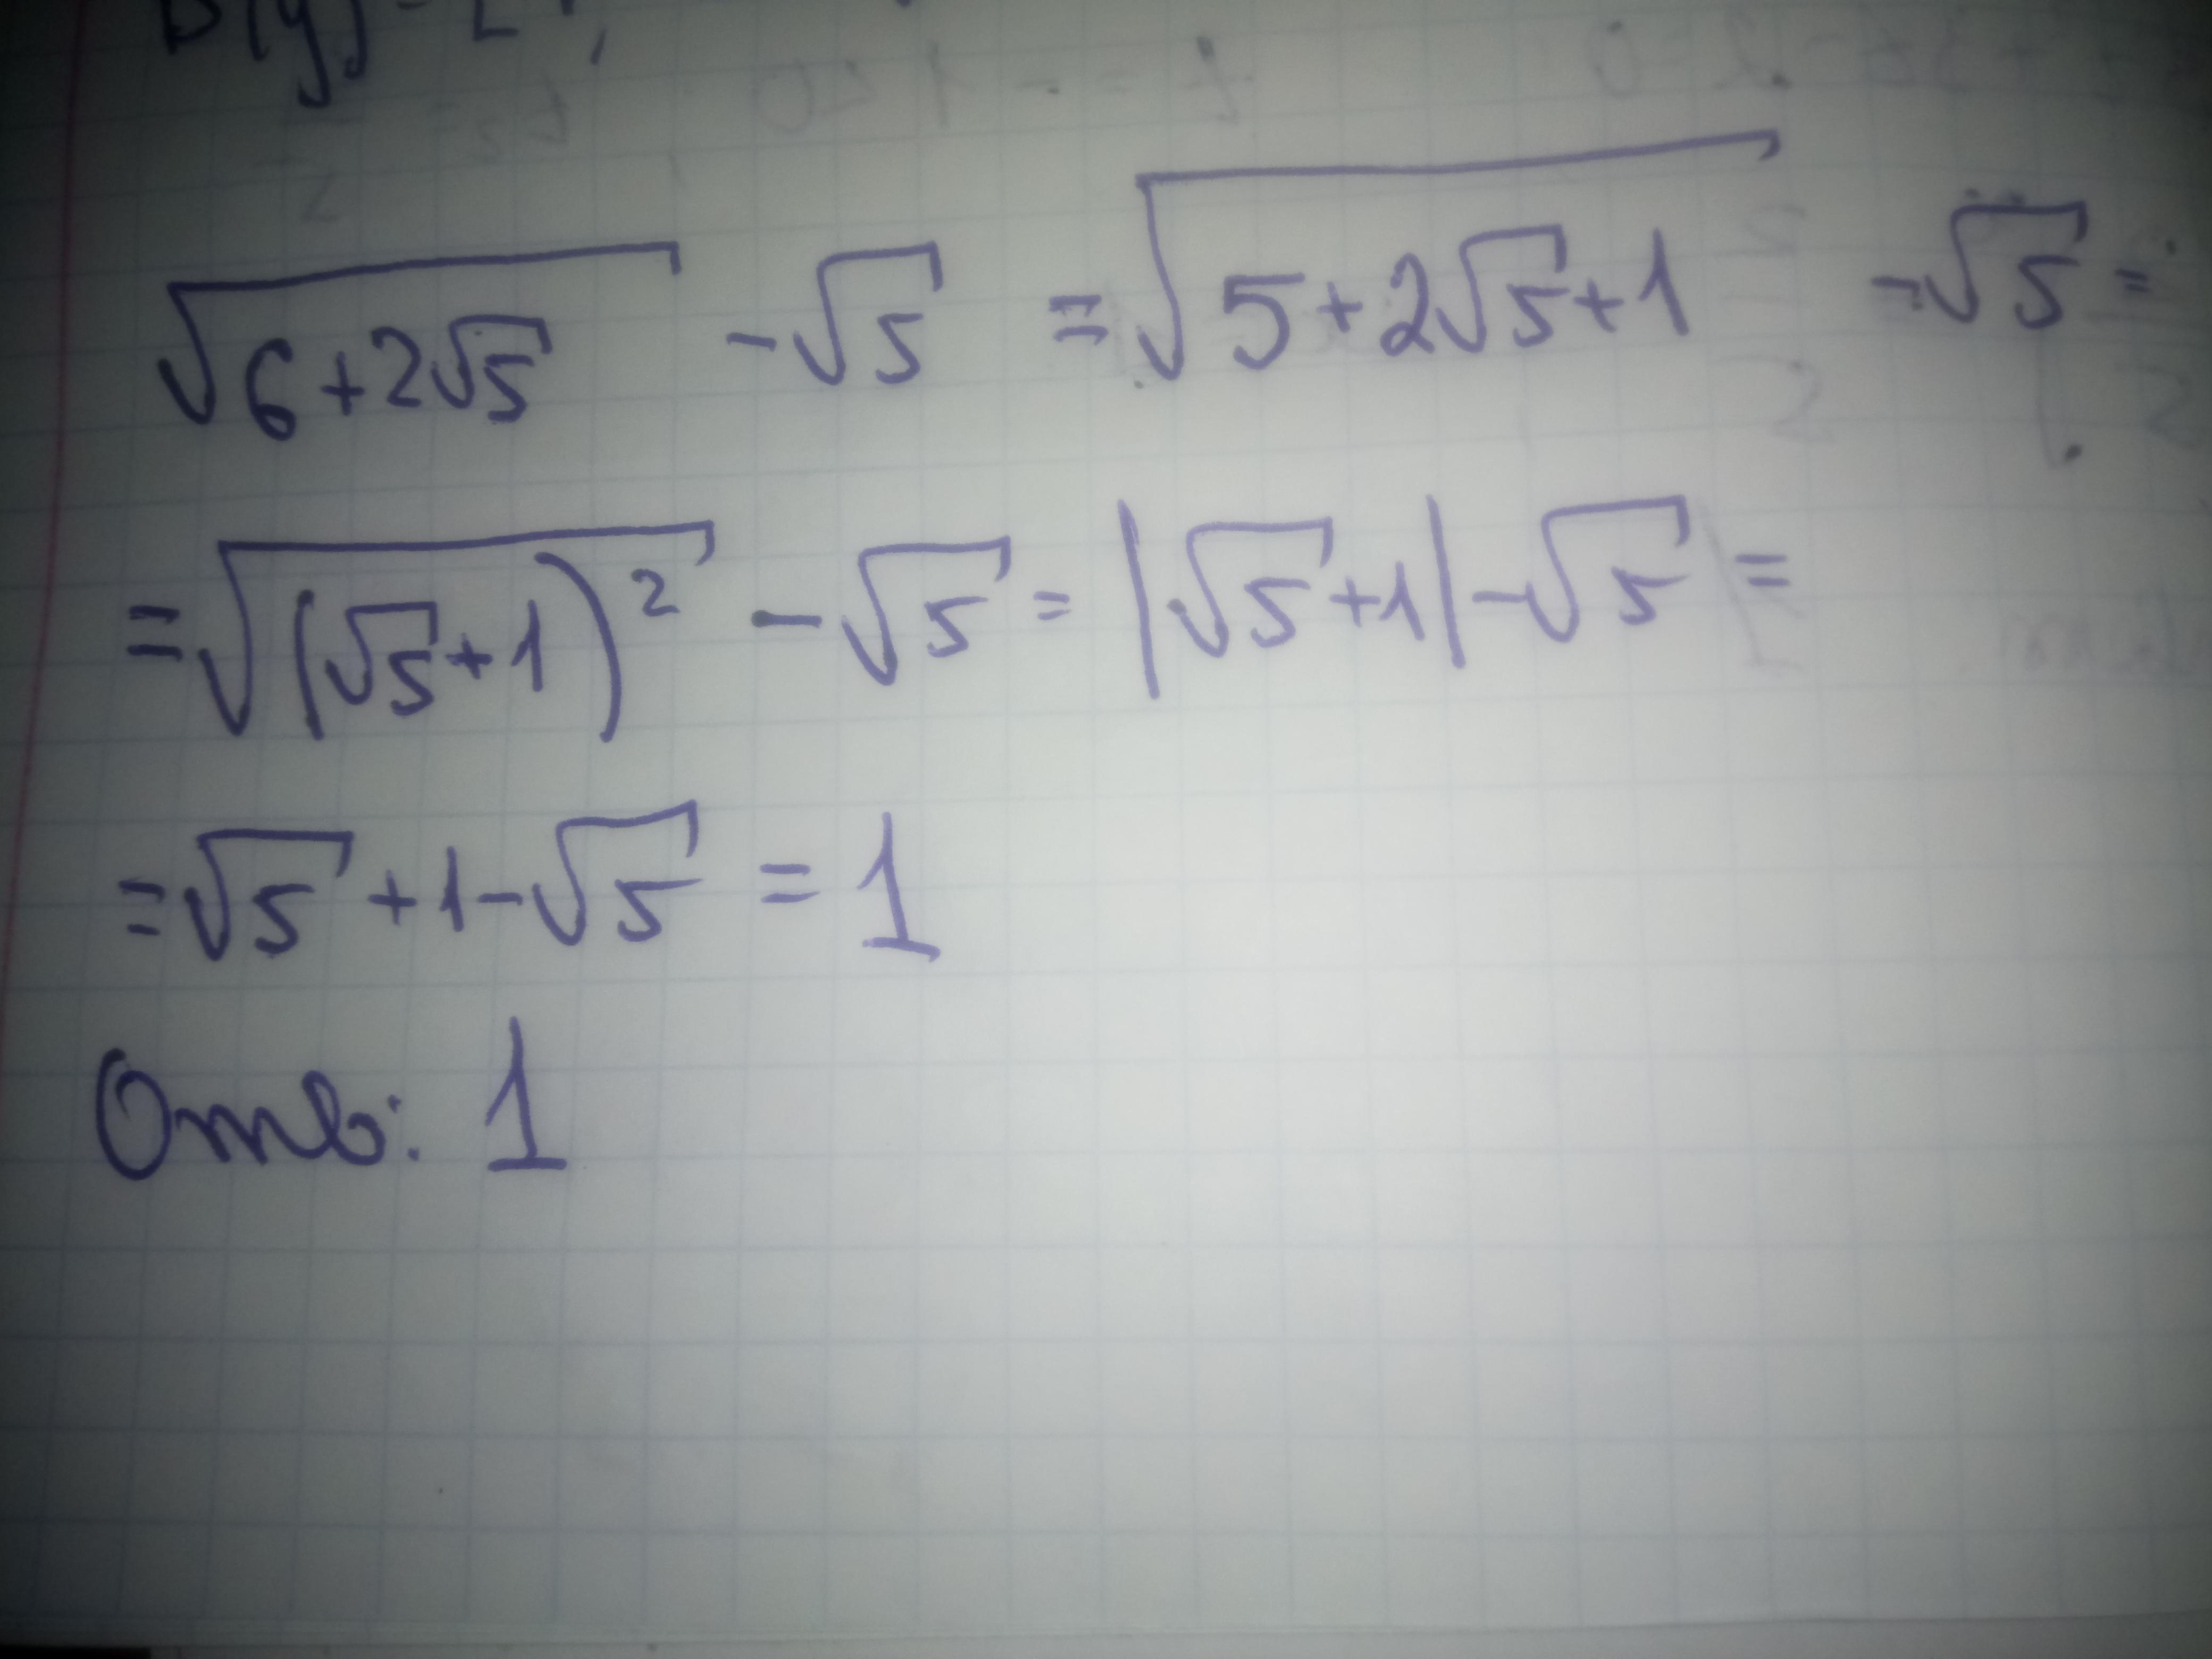 √(6+2√5) - √5 = √(5+2√5+1) - √5 =
= √((√5+1)²) - √5 = |√5+1| - √5 =
= √5 + 1 - √5 = 1
Отв: 1